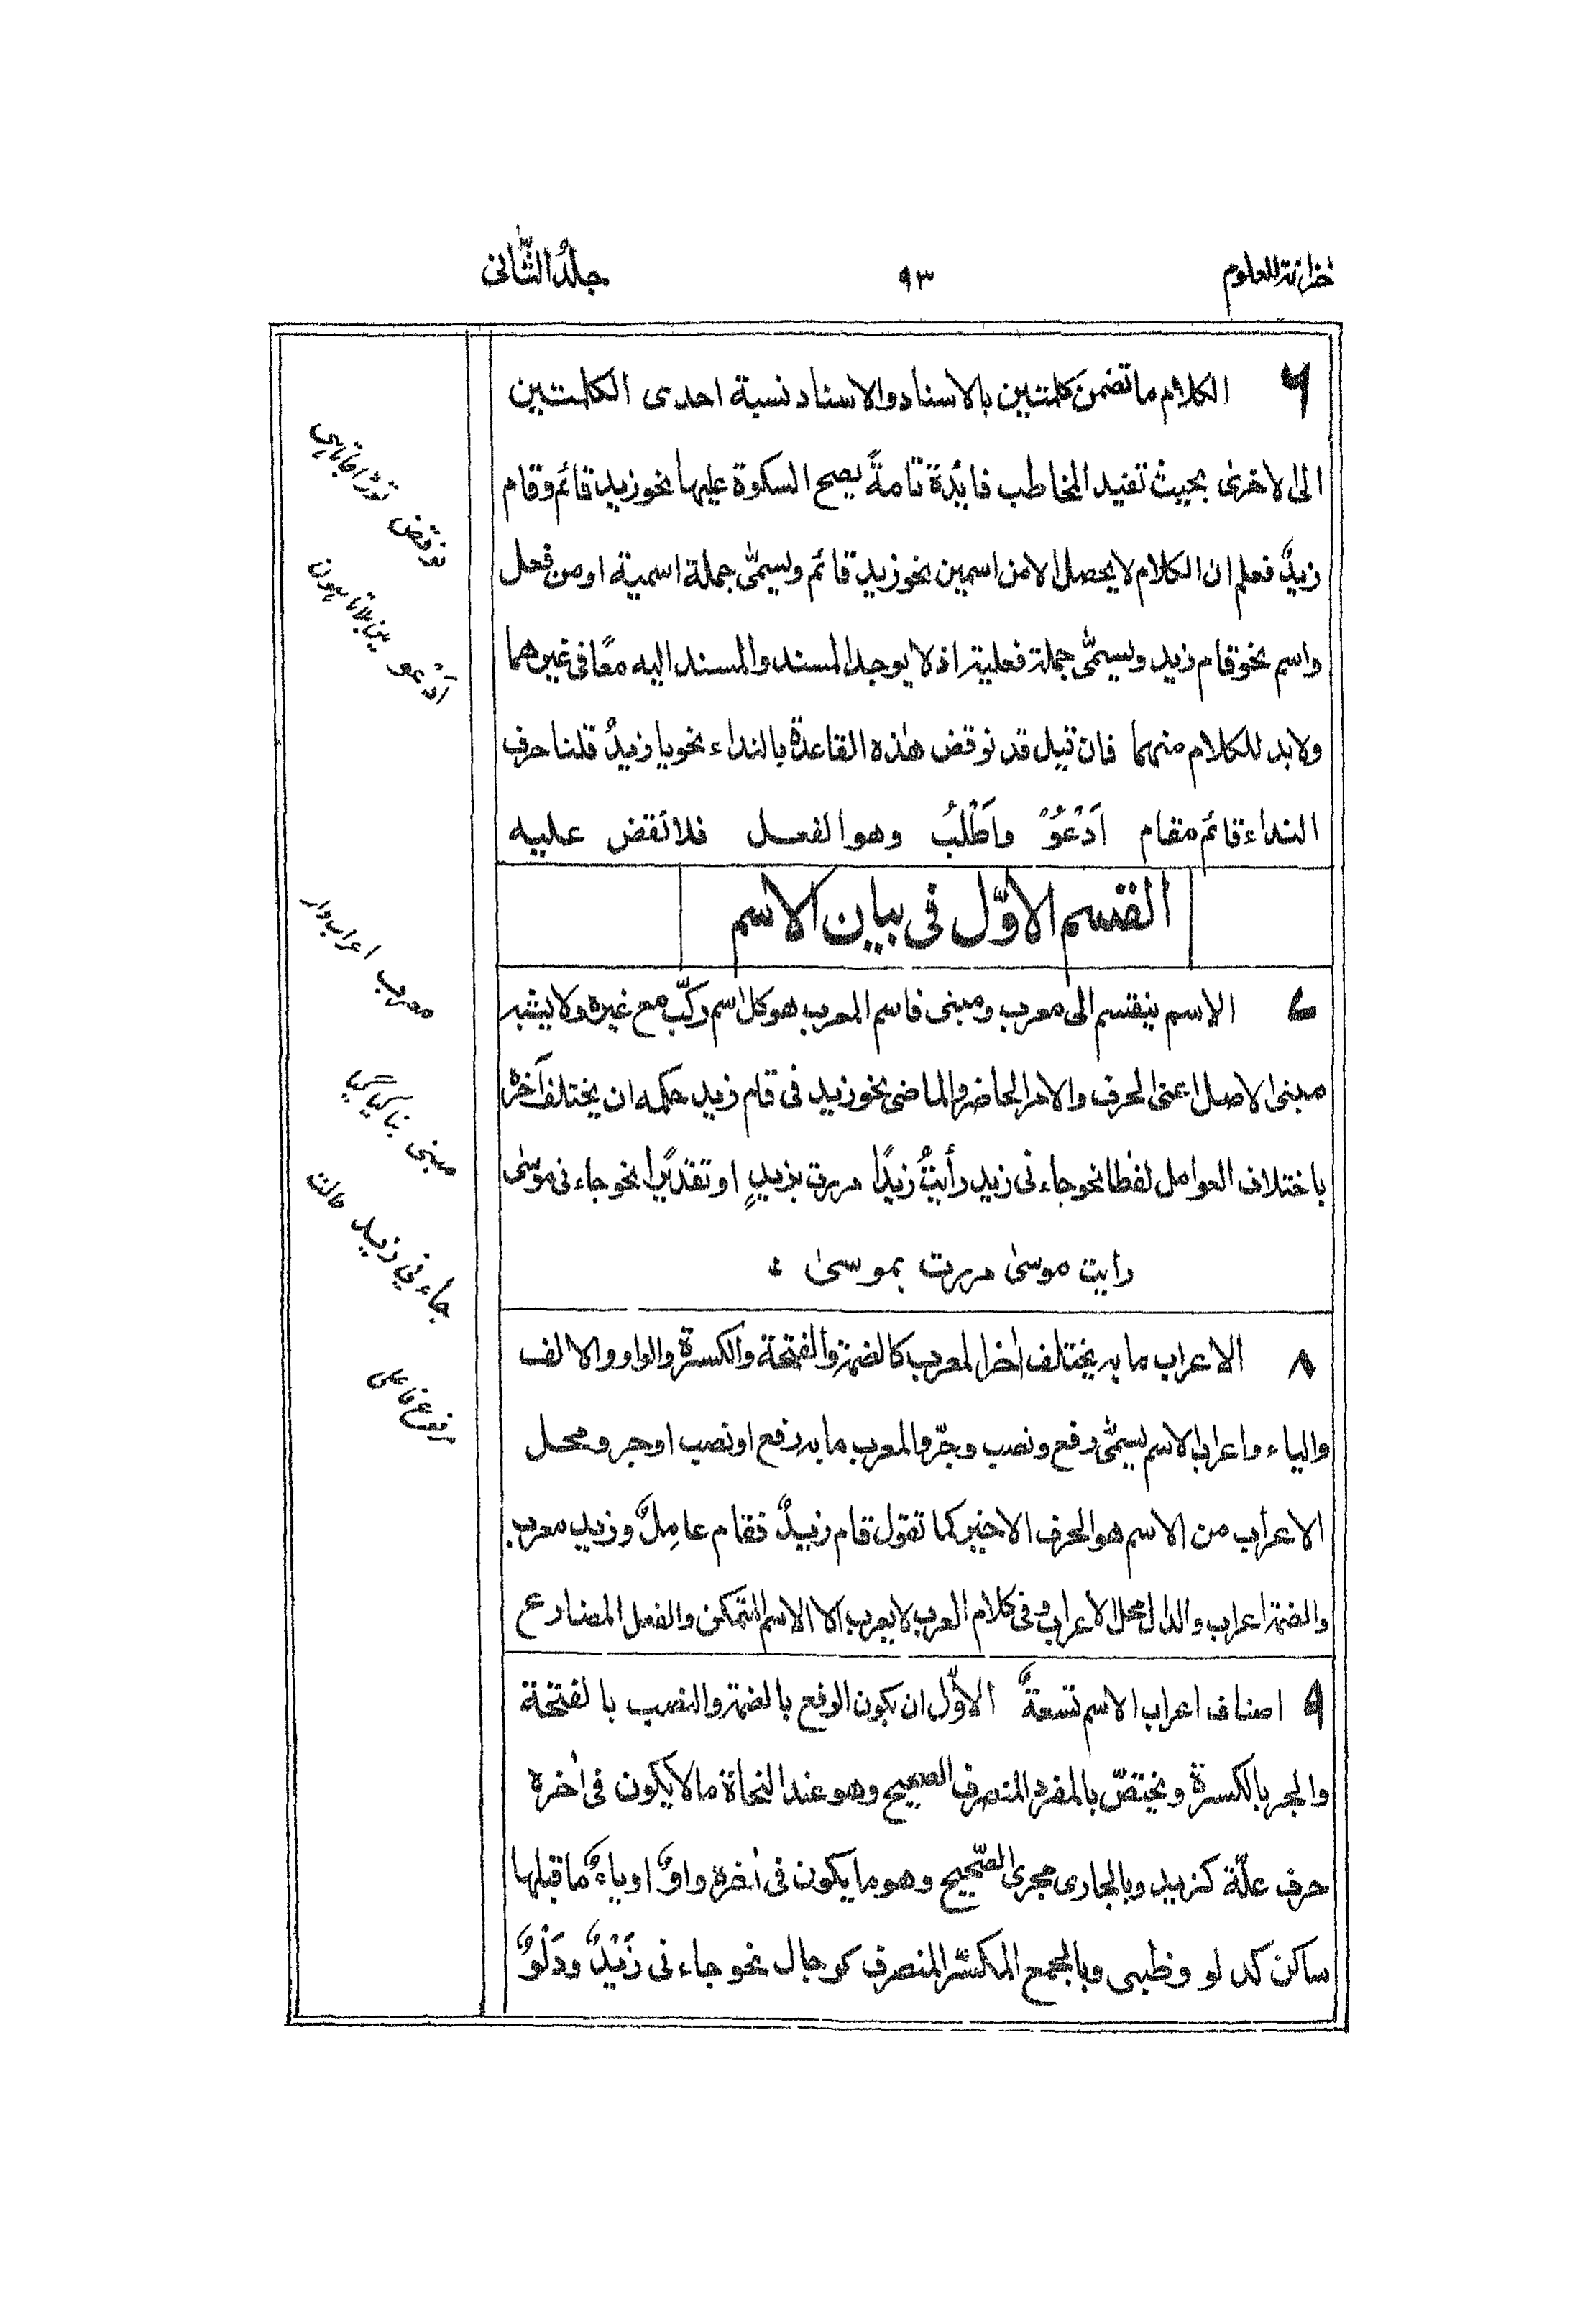 خزانۃ العلوم
٩٣
جلدُ الثّانی
۶ الکلام ما تضمن کلمتین بالاسناد والاسناد نسبة احدی الکلمتین
الی الاخریٰ بحیث تفید المخاطب فائدة تامةً یصح السکوة علیها نحو زید قائم وقام
زیدٌ فعلم ان الکلام لا یحصل الا من اسمین نحو زید قائم ویسمّٰی جملة اسمیة او من فعل
واسم نحو قام زید ویسمّٰی جملة فعلیة اذ لا یوجد المسند والمسند الیه معًا فی غیرهما
ولابد للکلام منهما فان قیل قد نوقض هٰذه القاعدة بالنداء نحو یا زیدُ قلنا حرف
النداء قائم مقام اَدْعُوْ واَطْلُبُ وهو الفعل فلا نقض علیه
القسم الاوّل فی بیان الاسم
۷ الاسم ینقسم الی معرب ومبنی فاسم المعرب هو کل اسم رکّب مع غیره ولا یشبه
مبنی الاصل اعنی الحرف والامر الحاضر والماضی نحو زید فی قام زید حکمه ان یختلف آخرهٗ
باختلاف العوامل لفظا نحو جاءنی زید رأیتُ زیدًا مررت بزیدٍ او تقدیرًا نحو جاءنی موسٰی
رایت موسیٰ مررت بموسیٰ
٨ الاعراب ما به یختلف اٰخر المعرب کالضمة والفتحة والکسرة والواو والالف
والیاء واعراب الاسم یسمّٰی رفع ونصب وجرّ والمعرب ما به رفع او نصب او جر ومحل
الاعراب من الاسم هو الحرف الاخیر کما تقول قام زیدٌ فقام عامِلٌ وزید معرب
والضمة اعراب والدال محل الاعراب وفی کلام العرب لا یعرب الا الاسم المتمکن والفعل المضارع
٩ اصناف اعراب الاسم تسعةٌ الاوّل ان یکون الرفع بالضمة والنصب بالفتحة
والجر بالکسرة ویختصّ بالمفرد المنصرف الصحیح وهو عند النحاة ما لا یکون فی اٰخره
حرف علّة کزید وبالجاری مجری الصّحیح وهو ما یکون فی اٰخره واوٌ او یاءٌ ما قبلها
ساکن کدلو وظبی وبالجمع المکسّر المنصرف کرجال نحو جاءنی زَیْدٌ ودَلْوٌ
نوقض توڑا جاتا ہی
اَدْعو میں بلاتا ہوں
معرب اعراب دار
مبنی بنا کیا گیا
جاءنی زید حالت
رفع فاعلی